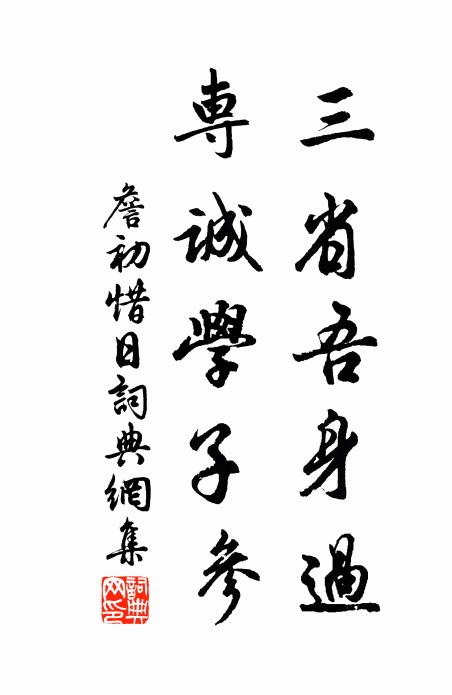 三省吾身過
専誠學子參
詹初惜日詞典網集
詞典網印